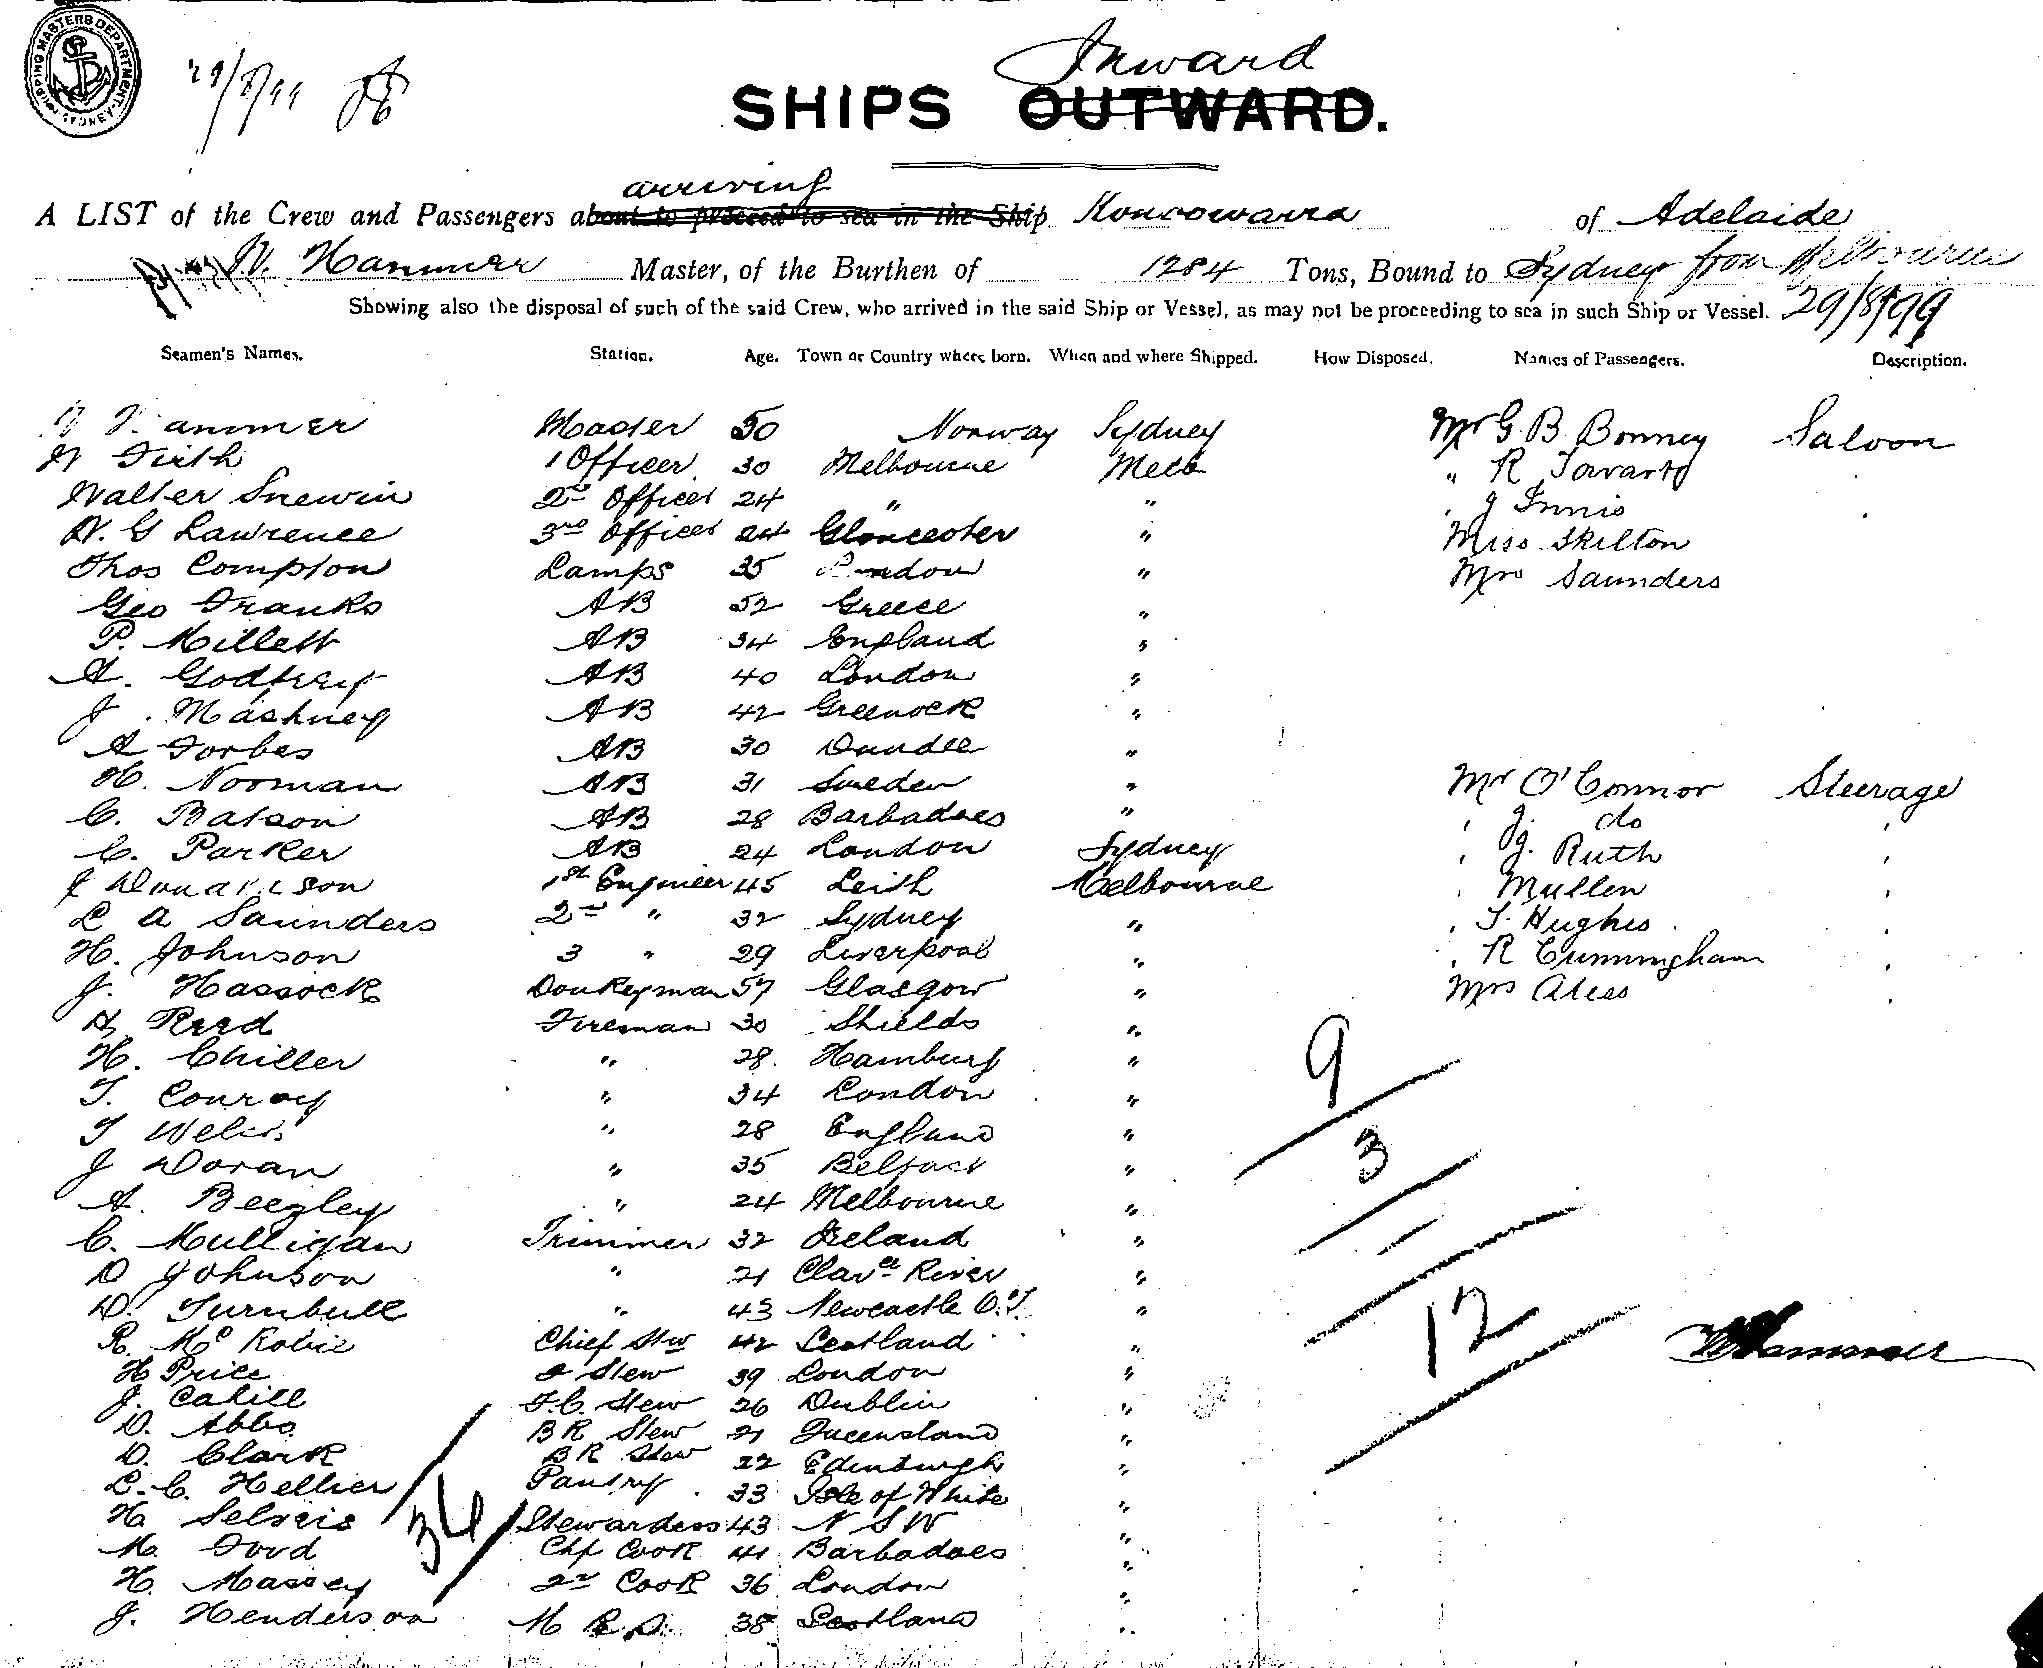 SHIPPING MASTERS DEPARTMENT SYDNEY
29/8/99
Inward
SHIPS OUTWARD.
arriving
A LIST of the Crew and Passengers about to proceed to sea in the Ship Konoowarra of Adelaide
W. Hammer Master, of the Burthen of 1284 Tons, Bound to Sydney from Melbourne
Showing also the disposal of such of the said Crew, who arrived in the said Ship or Vessel, as may not be proceeding to sea in such Ship or Vessel. 29/8/99
Seamen's Names. Station. Age. Town or Country where born. When and where Shipped. How Disposed. Names of Passengers. Description.
Hammer Master 50 Norway Sydney Mr G. B Bonney Saloon
W Firth 1 Officer 30 Melbourne Melb " R Tavart
Walter Snewin 2nd Officer 24 " " J Innis
W. G Lawrence 3rd Officer 24 Gloucester " Miss Skilton
Thos Compton Lamps 35 London " Mrs Saunders
Geo Franks AB 52 Greece "
P. Millett AB 34 England "
A. Godfrey AB 40 London "
J. Mashney AB 42 Greenock "
A Forbes AB 30 Dundee "
H. Norman AB 31 Sweden " Mr O'Connor Steerage
C. Batson AB 28 Barbadoes " J. do
C. Parker AB 24 London Sydney J. Ruth
J Donaldson 1st Engineer 45 Leith Melbourne Mullen
L A Saunders 2nd " 32 Sydney " T. Hughes
H. Johnson 3 " 29 Liverpool " R Cunningham
J. Hassock Donkeyman 57 Glasgow " Mrs
A Reed Fireman 30 Shields "
H. Chiller " 28 Hamburg " 9
T. Conroy " 34 London "
T " 28 England " 3
J Doran " 35 Belfast "
A. Beezley " 24 Melbourne "
C. Mulligan Trimmer 32 Ireland "
D Johnson " 21 Clarce River "
D. Turnbull " 43 Newcastle O.T. " 12
R. Mc Robie Chief Stw 42 Scotland " W Hammer
H Price 2 Stew 39 London "
J. Cahill F.C. Stew 26 Dublin "
D. Abbs BR Stew 21 Queensland "
D. Clark BR Stew 22 Edinburgh "
L. C. Hellier Pantry 33 Isle of White "
H Stewardess 43 N S W "
36
M. Ford Chf Cook 41 Barbadoes "
H. Massey 2nd Cook 36 London "
J. Henderson 38 Scotland "